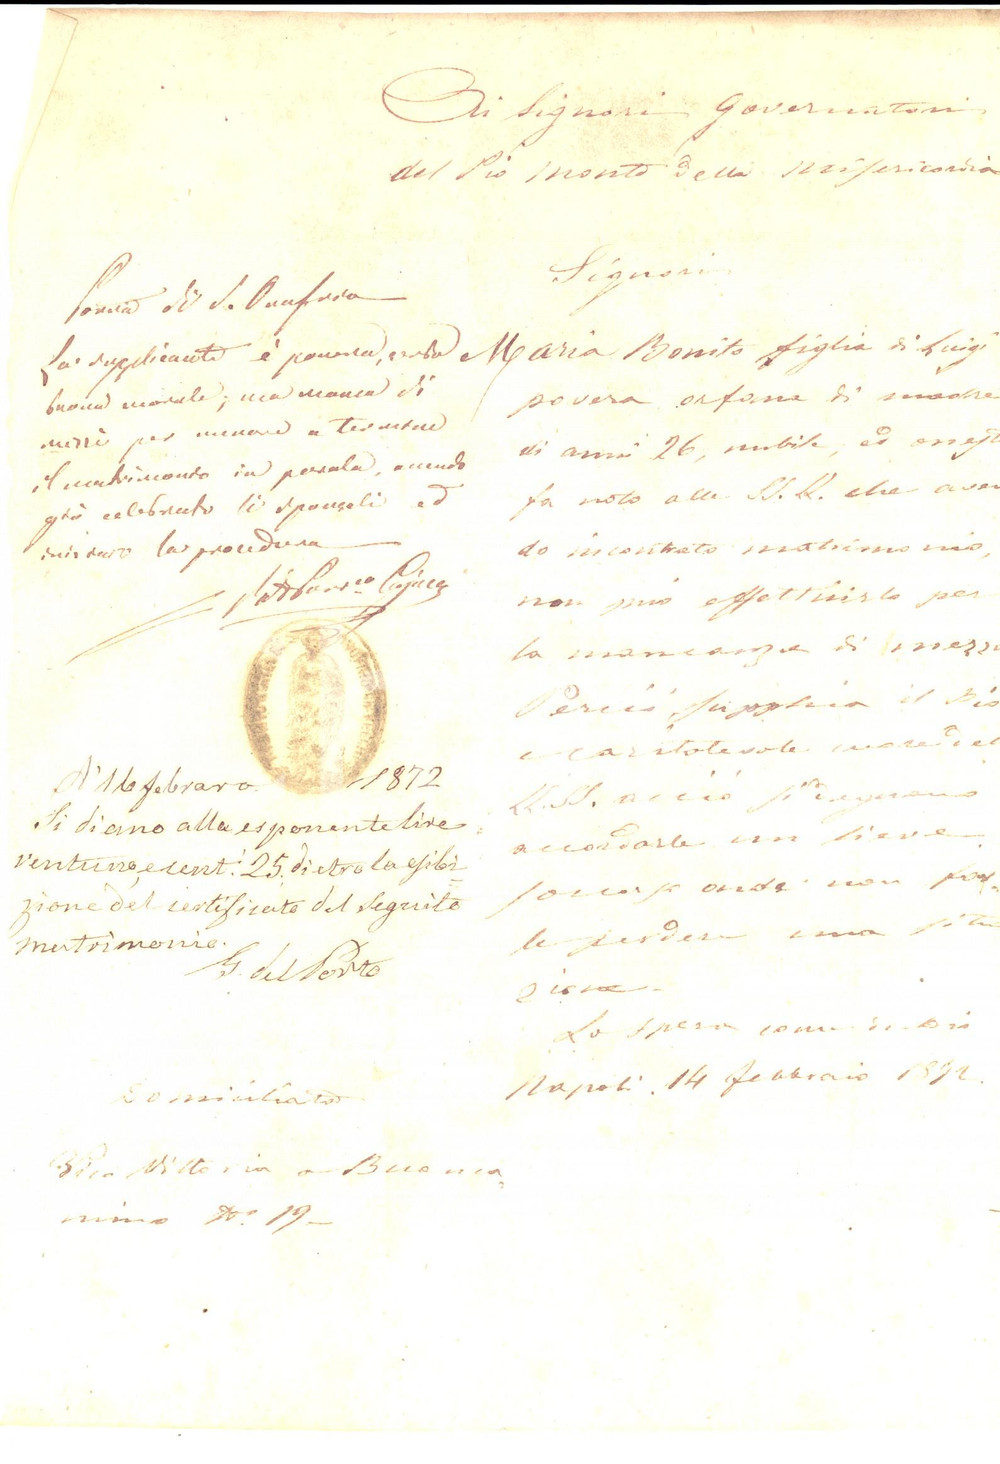 Ai Signori Governatori
del Pio Monte della Misericordia
Signori
Maria Bonito figlia di Luigi
povera orfana di madre
di anni 26, nubile, ed onest
fa noto alle SS. LL. che aven
do incontrato matrimonio,
non può effettuirlo per
la mancanza di mezzi
Perciò supplica il Pio
e caritatevole cuore del
LL. SS. acciò si degnano
accordarle un lieve
soccorso onde non far
le perdere una situ
zione
Lo spera come da Dio
Napoli. 14 febbraio 1872.
di S. Onofrio
La supplicante è povera,
buona morale; ma manca di
mezzi per menare a termine
il matrimonio in parola, avendo
già celebrato li sponsali ed
la procedura
A' 16 febraro 1872
Si diano alla esponente lire
ventuno, e cent. 25, dietro la esibi-
zione del certificato del seguito
matrimonio.
G. del Porto
Domiciliata
Vico Vittoria a Buonca
mino No. 19